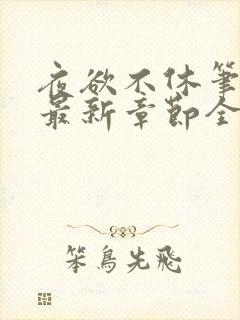 夜欲不休笔
最新章节全
笨鸟先飞